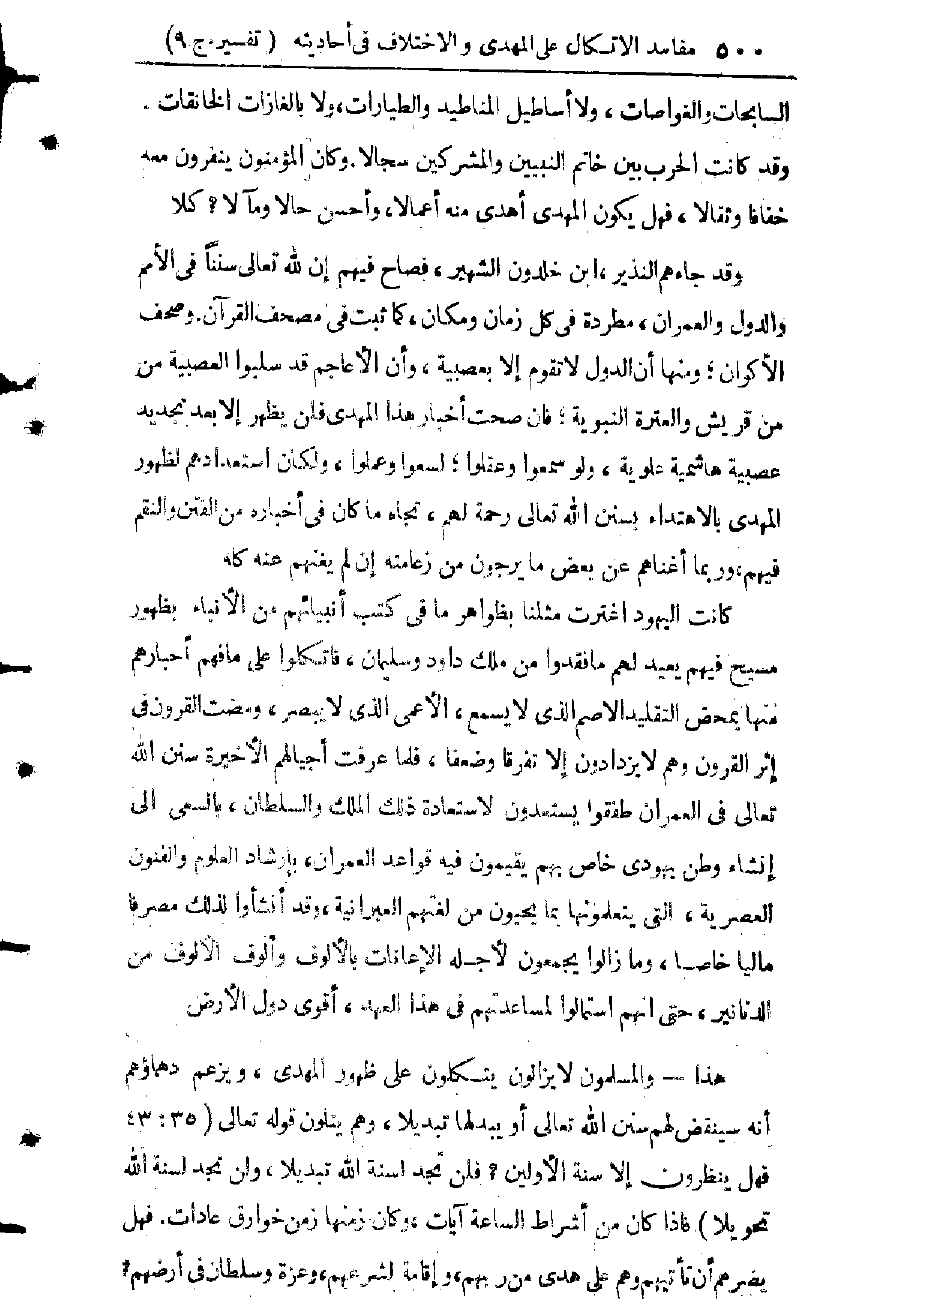 ٥٠٠ مفاسد الاتكال على المهدى والاختلاف فى أحاديثه ( تفسير . ج ٩ )
السابحات والغواصات ، ولا أساطيل المناطيد والطيارات، ولا بالغازات الخانقات .
وقد كانت الحرب بين خاتم النبيين والمشركين سجالا. وكان المؤمنون ينفرون معه
خفافا وثقالا ، فهل يكون المهدى أهدى منه أعمالا، وأحسن حالا ومآلا ؟ كلا
وقد جاءهم النذير ، ابن خلدون الشهير ، فصاح فيهم إن لله تعالى سننا فى الأمم
والدول والعمران ، مطردة فى كل زمان ومكان ، كما ثبت فى مصحف القرآن. وصحف
الأكوان ؛ ومنها أن الدول لا تقوم إلا بعصبية ، وأن الأعاجم قد سلبوا العصبية من
من قريش والعترة النبوية ؛ فان صحت أخبار هذا المهدى فلن يظهر إلا بعد تجديد
عصبية هاشمية علوية ، ولو سمعوا وعقلوا ؛ لسعوا وعملوا ، ولكان استعدادهم لظهور
المهدى بالاهتداء بسنن الله تعالى رحمة لهم ، تجاه ما كان فى أخباره من الفتن والنقم
فيهم، وربما أغناهم عن بعض ما يرجون من زعامته إن لم يغنهم عنه كله
كانت اليهود اغترت مثلنا بظواهر ما فى كتب أنبيائهم من الأنباء بظهور
مسيح فيهم يعيد لهم ما فقدوا من ملك داود وسليمان ، فاتكلوا على ما فهم أحبارهم
منها بمحض التقليد الاصم الذى لا يسمع ، الأعمى الذى لا يبصر ، ومضت القرون فى
إثر القرون وهم لا يزدادون إلا تفرقا وضعفا ، فلما عرفت أجيالهم الأخيرة سنن الله
تعالى فى العمران طفقوا يستعدون لاستعادة ذلك الملك والسلطان ، بالسعى الى
إنشاء وطن يهودى خاص بهم يقيمون فيه قواعد العمران، بإرشاد العلوم والفنون
العصرية ، التى يتعلمونها بما يحيون من لغتهم العبرانية ، وقد أنشأوا لذلك مصرفا
ماليا خاصا ، وما زالوا يجمعون لأجله الإعانات بالألوف وألوف الألوف من
الدنانير ، حتى انهم استمالوا لمساعدتهم فى هذا العهد ، أقوى دول الأرض
هذا — والمسلمون لا يزالون يتكلون على ظهور المهدى ، ويزعم دهماؤهم
أنه سينقض لهم سنن الله تعالى أو يبدلها تبديلا ، وهم يتلون قوله تعالى ( ٣٥ : ٤٣
فهل ينظرون إلا سنة الأولين ؟ فلن تجد لسنة الله تبديلا ، ولن تجد لسنة الله
تحويلا ) فاذا كان من أشراط الساعة آيات ، وكان زمنها زمن خوارق عادات. فهل
يضرهم أن تأتيهم وهم على هدى من ربهم، وإقامة لشرعهم، وعزة وسلطان فى أرضهم؟